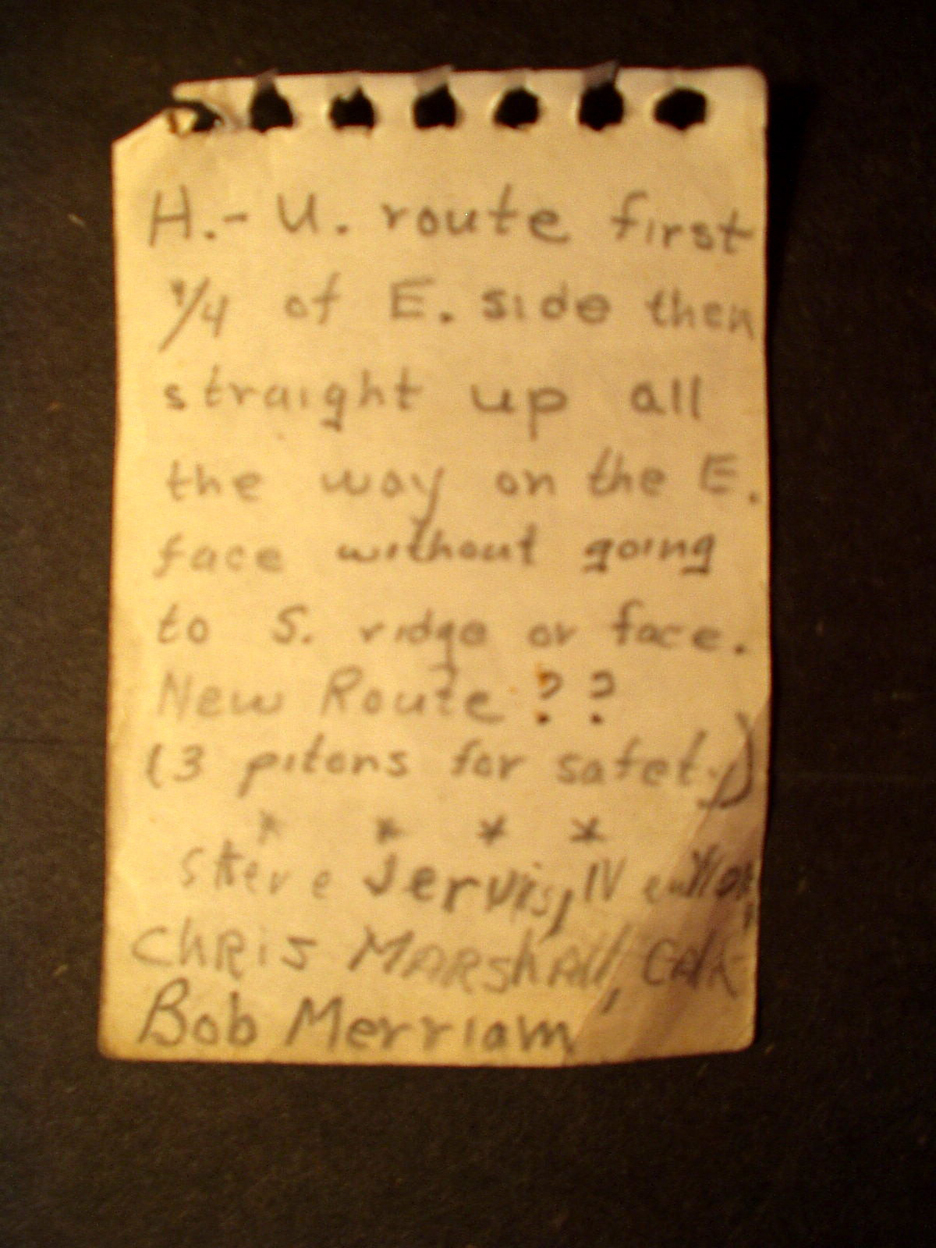 H.- U. route first
1/4 of E. side then
straight up all
the way on the E.
face without going
to S. ridge or face.
New Route ??
(3 pitons for safety)
* * * *
Steve Jervis,
Chris MARShAll,
Bob Merriam